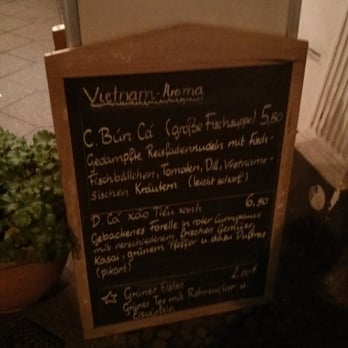 Vietnam-Aroma
C. Bún Cá (große Fischsuppe) 5,50
Gedämpfte Reisfadennudeln mit Fisch-
Fischbällchen, Tomaten, Dill, Vietname-
sischen Kräutern (leicht scharf)
D. Cá xào Tiêu xanh 6,50
Gebackenes Forelle in roter Currysauce
mit verschiedenem frischen Gemüse,
grünem Pfeffer u. dazu Duftreis
(pikant)
☆ Grüner Eistee 2,00€
Grüner Tee mit Rohrzucker u.